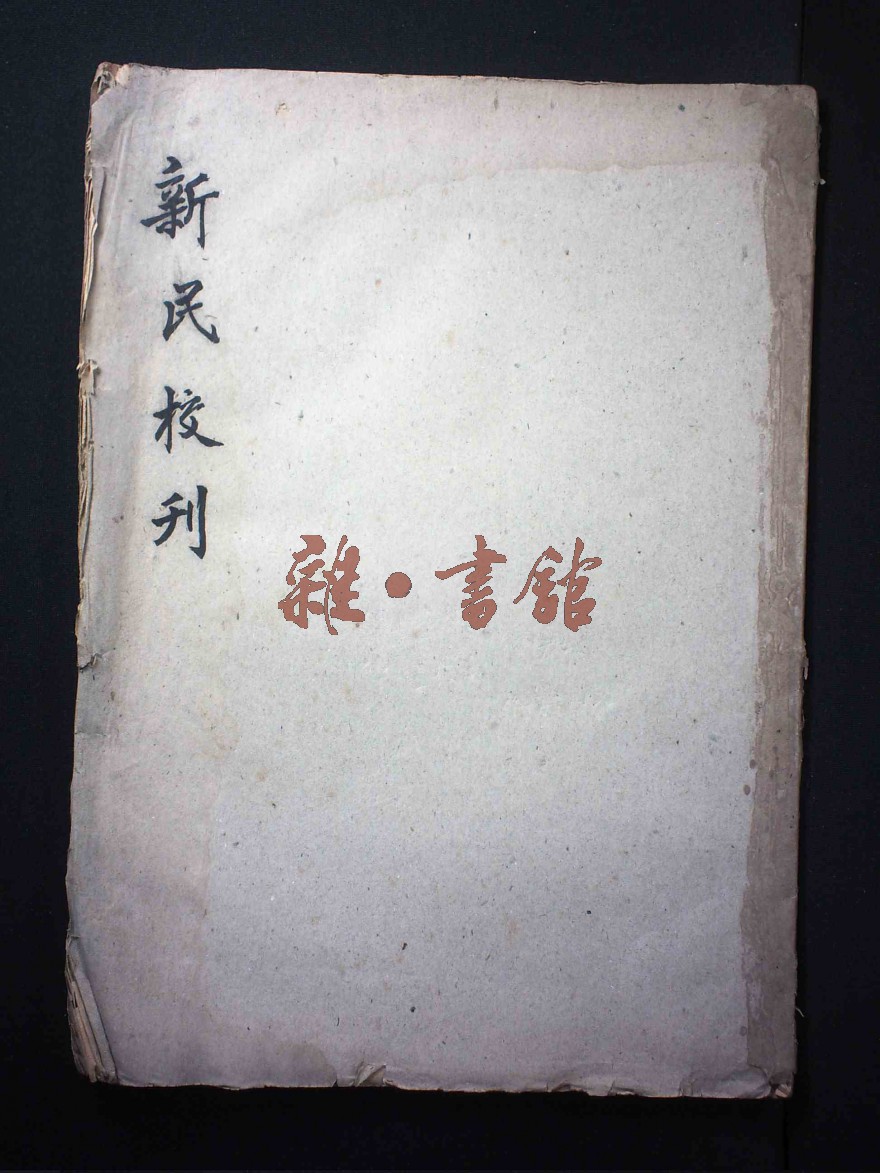 新民校刊
雜·書館